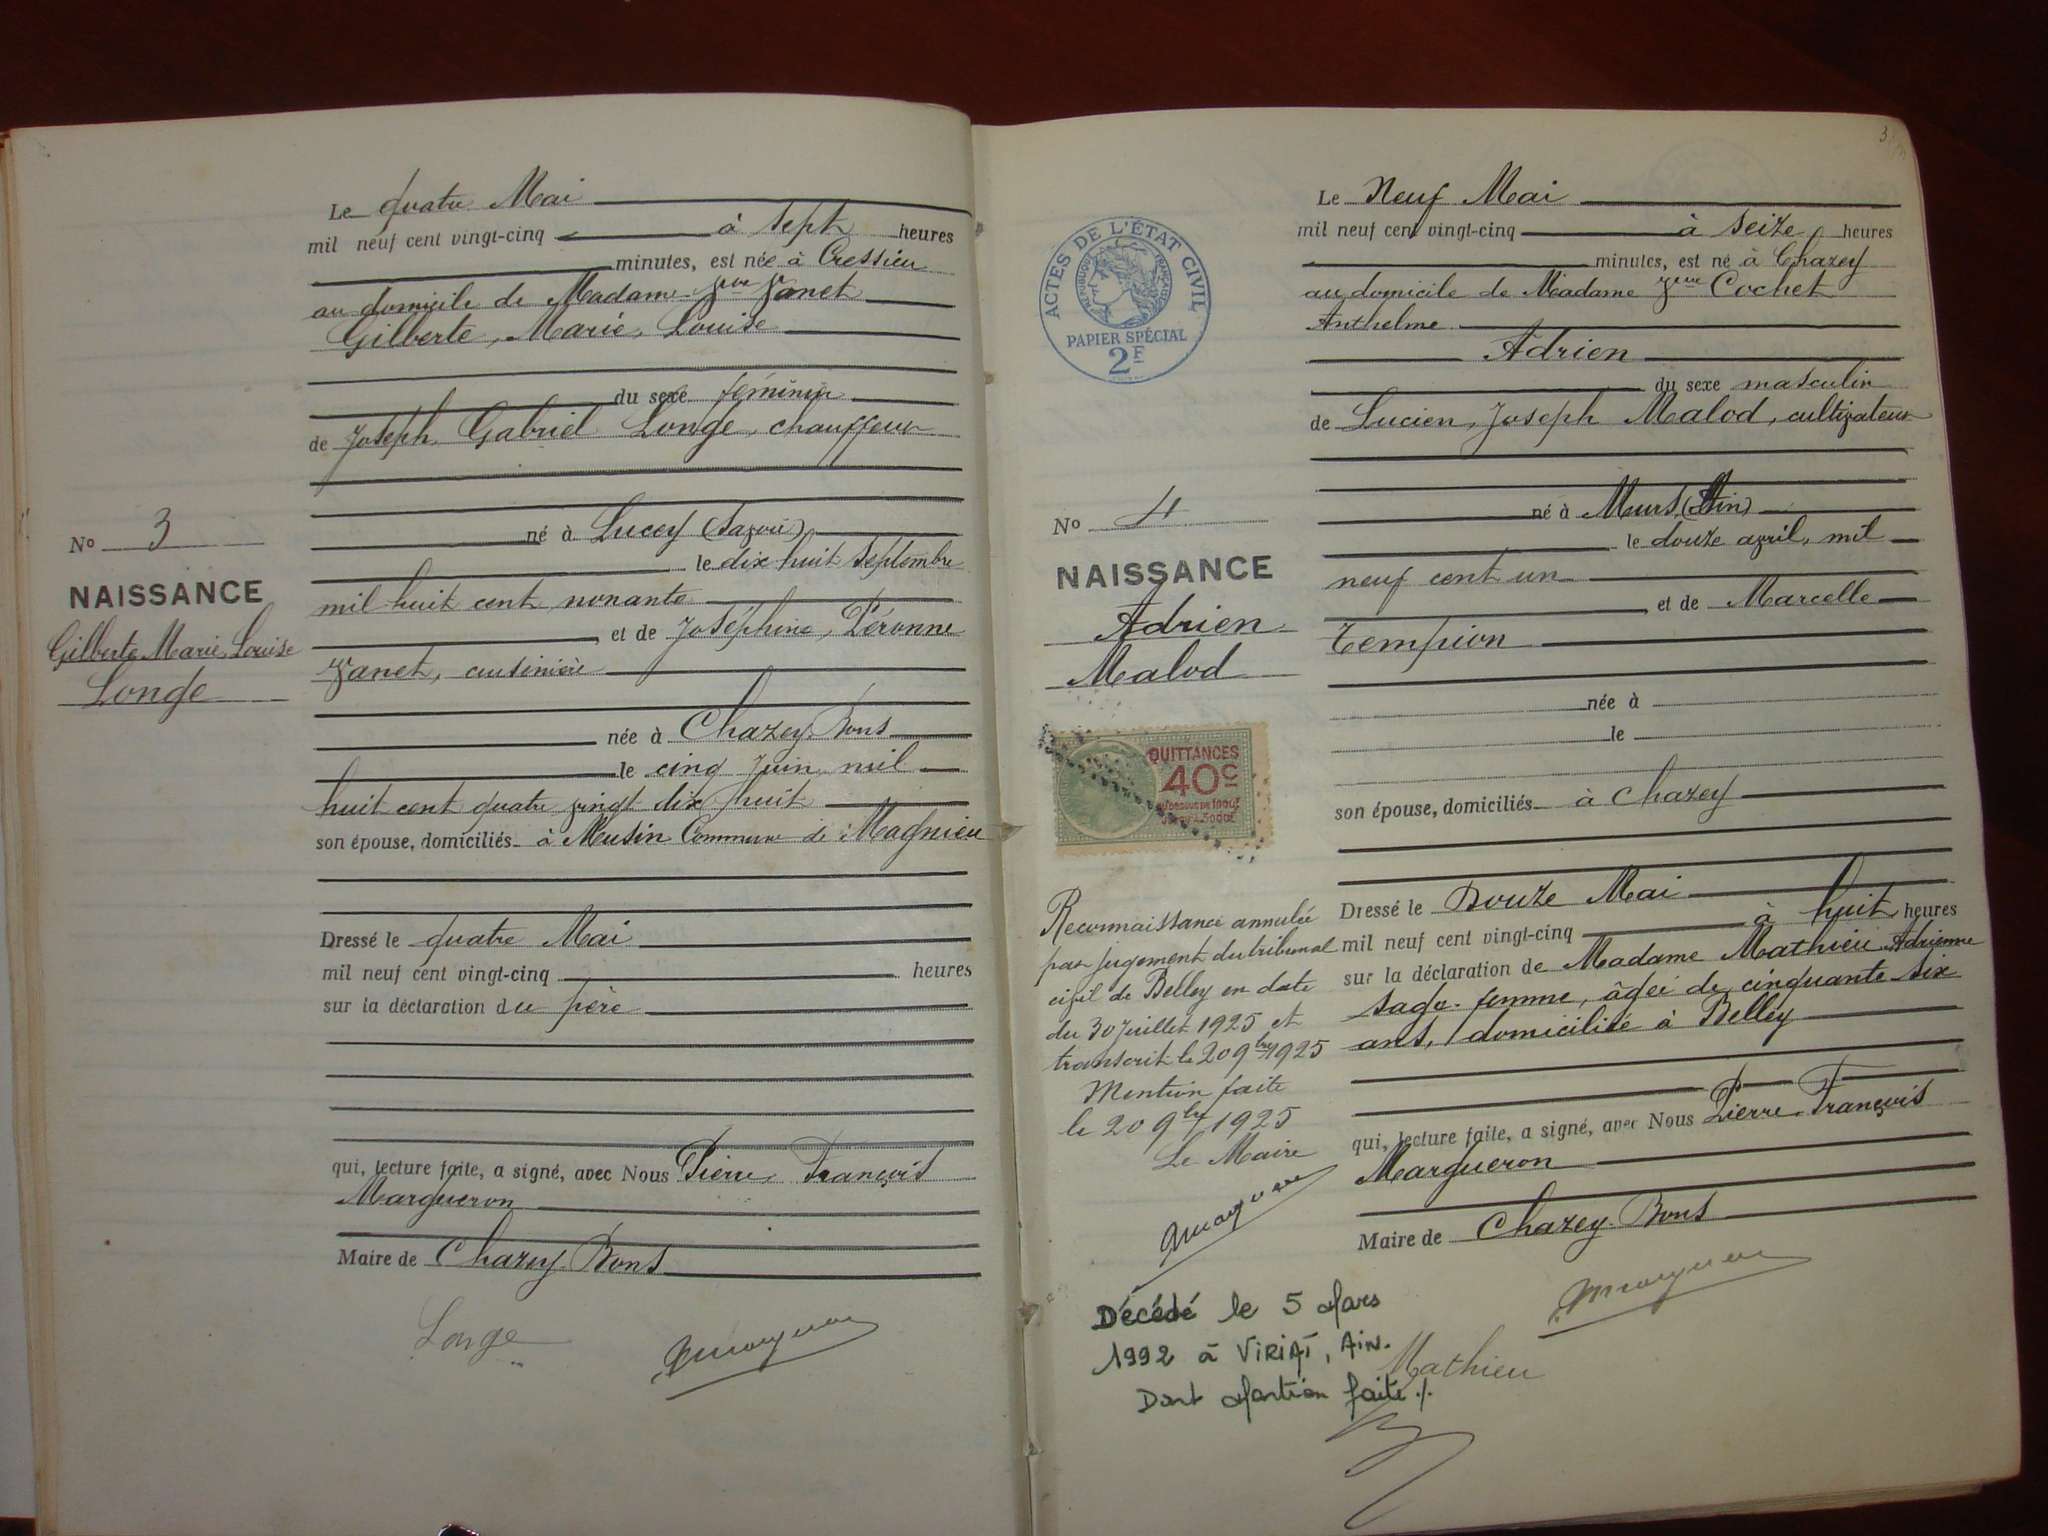 Le quatre Mai
mil neuf cent vingt-cinq à sept heures
minutes, est née à Cressieu
au domicile de Madame Vve Vanet
Gilberte, Marie, Louise
du sexe féminin
de Joseph Gabriel Longe, chauffeur
né à Lucey (Savoie)
le dix huit septembre
mil huit cent nonante
et de Joséphine, Péronne
Vanet, cuisinière
née à Chazey-Bons
le cinq Juin mil
huit cent quatre vingt dix huit
son épouse, domiciliés à Musin Commune de Magnieu
Dressé le quatre Mai
mil neuf cent vingt-cinq heures
sur la déclaration du père
qui, lecture faite, a signé, avec Nous Pierre, François
Margueron
Maire de Chazey-Bons
Longe
Margueron
No 3
NAISSANCE
Gilberte Marie Louise
Longe
3
ACTES DE L'ÉTAT CIVIL
RÉPUBLIQUE FRANÇAISE
PAPIER SPÉCIAL
2F
Le Neuf Mai
mil neuf cent vingt-cinq à seize heures
minutes, est né à Chazey
au domicile de Madame Vve Cochet
Anthelme
Adrien
du sexe masculin
de Lucien, Joseph Malod, cultivateur
né à Murs (Ain)
le douze avril, mil
neuf cent un
et de Marcelle
Tempion
née à
le
son épouse, domiciliés à Chazey
Dressé le Douze Mai
mil neuf cent vingt-cinq à huit heures
sur la déclaration de Madame Mathieu Adrienne
sage-femme, âgée de cinquante six
ans, domiciliée à Belley
qui, lecture faite, a signé, avec Nous Pierre François
Margueron
Maire de Chazey-Bons
Margueron
Mathieu
No 4
NAISSANCE
Adrien
Malod
QUITTANCES
40c
Reconnaissance annulée
par jugement du tribunal
civil de Belley en date
du 30 Juillet 1925 et
transcrit le 20 9bre 1925
Mention faite
le 20 9bre 1925
Le Maire
Margueron
Décédé le 5 Mars
1992 à VIRIAT, Ain.
Dont Mention faite ./.